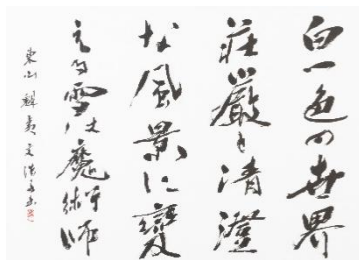 白一色の世界
荘厳も清澄
な風景に變
える雪は魔術師